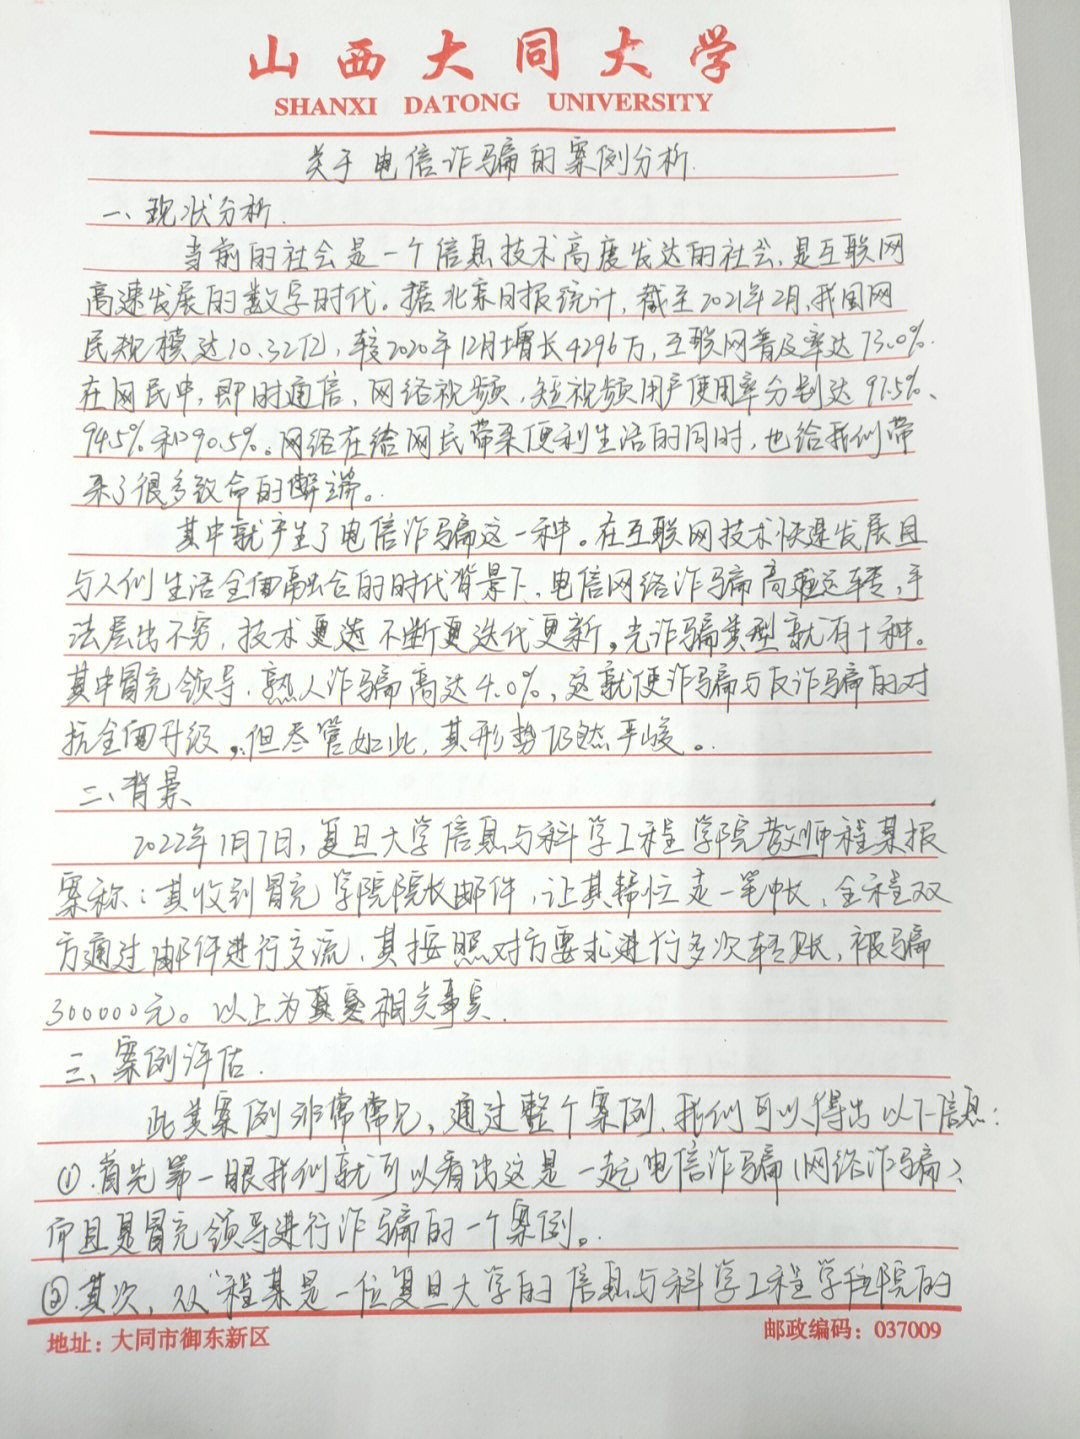 山西大同大学
SHANXI DATONG UNIVERSITY
关于电信诈骗的案例分析.
一、现状分析.
当前的社会是一个信息技术高度发达的社会,是互联网
高速发展的数字时代。据北京日报统计,截至2021年2月,我国网
民规模达10.32亿,较2020年12月增长4296万,互联网普及率达73.0%.
在网民中,即时通信、网络视频、短视频用户使用率分别达97.5%、
94.5%和90.5%。网络在给网民带来便利生活的同时,也给我们带
来了很多致命的弊端。
其中就产生了电信诈骗这一种。在互联网技术快速发展且
与人们生活全面融合的时代背景下,电信网络诈骗高速运转,手
法层出不穷,技术更迭不断更迭代更新。光诈骗类型就有十种。
其中冒充领导、熟人诈骗高达4.0%,这就使诈骗与反诈骗的对
抗全面升级,但尽管如此,其形势仍然严峻。
二、背景
2022年1月7日,复旦大学信息与科学工程学院教师程某报
案称:其收到冒充学院院长邮件,让其帮忙走一笔帐,全程双
方通过邮件进行交流,其按照对方要求进行多次转账,被骗
300000元。以上为真案相关事实.
三、案例评估.
此类案例非常常见,通过整个案例,我们可以得出以下信息:
①.首先第一眼我们就可以看出这是一起电信诈骗(网络诈骗),
而且是冒充领导进行诈骗的一个案例。
②.其次,从“程某是一位复旦大学的信息与科学工程学院的
地址:大同市御东新区
邮政编码:037009